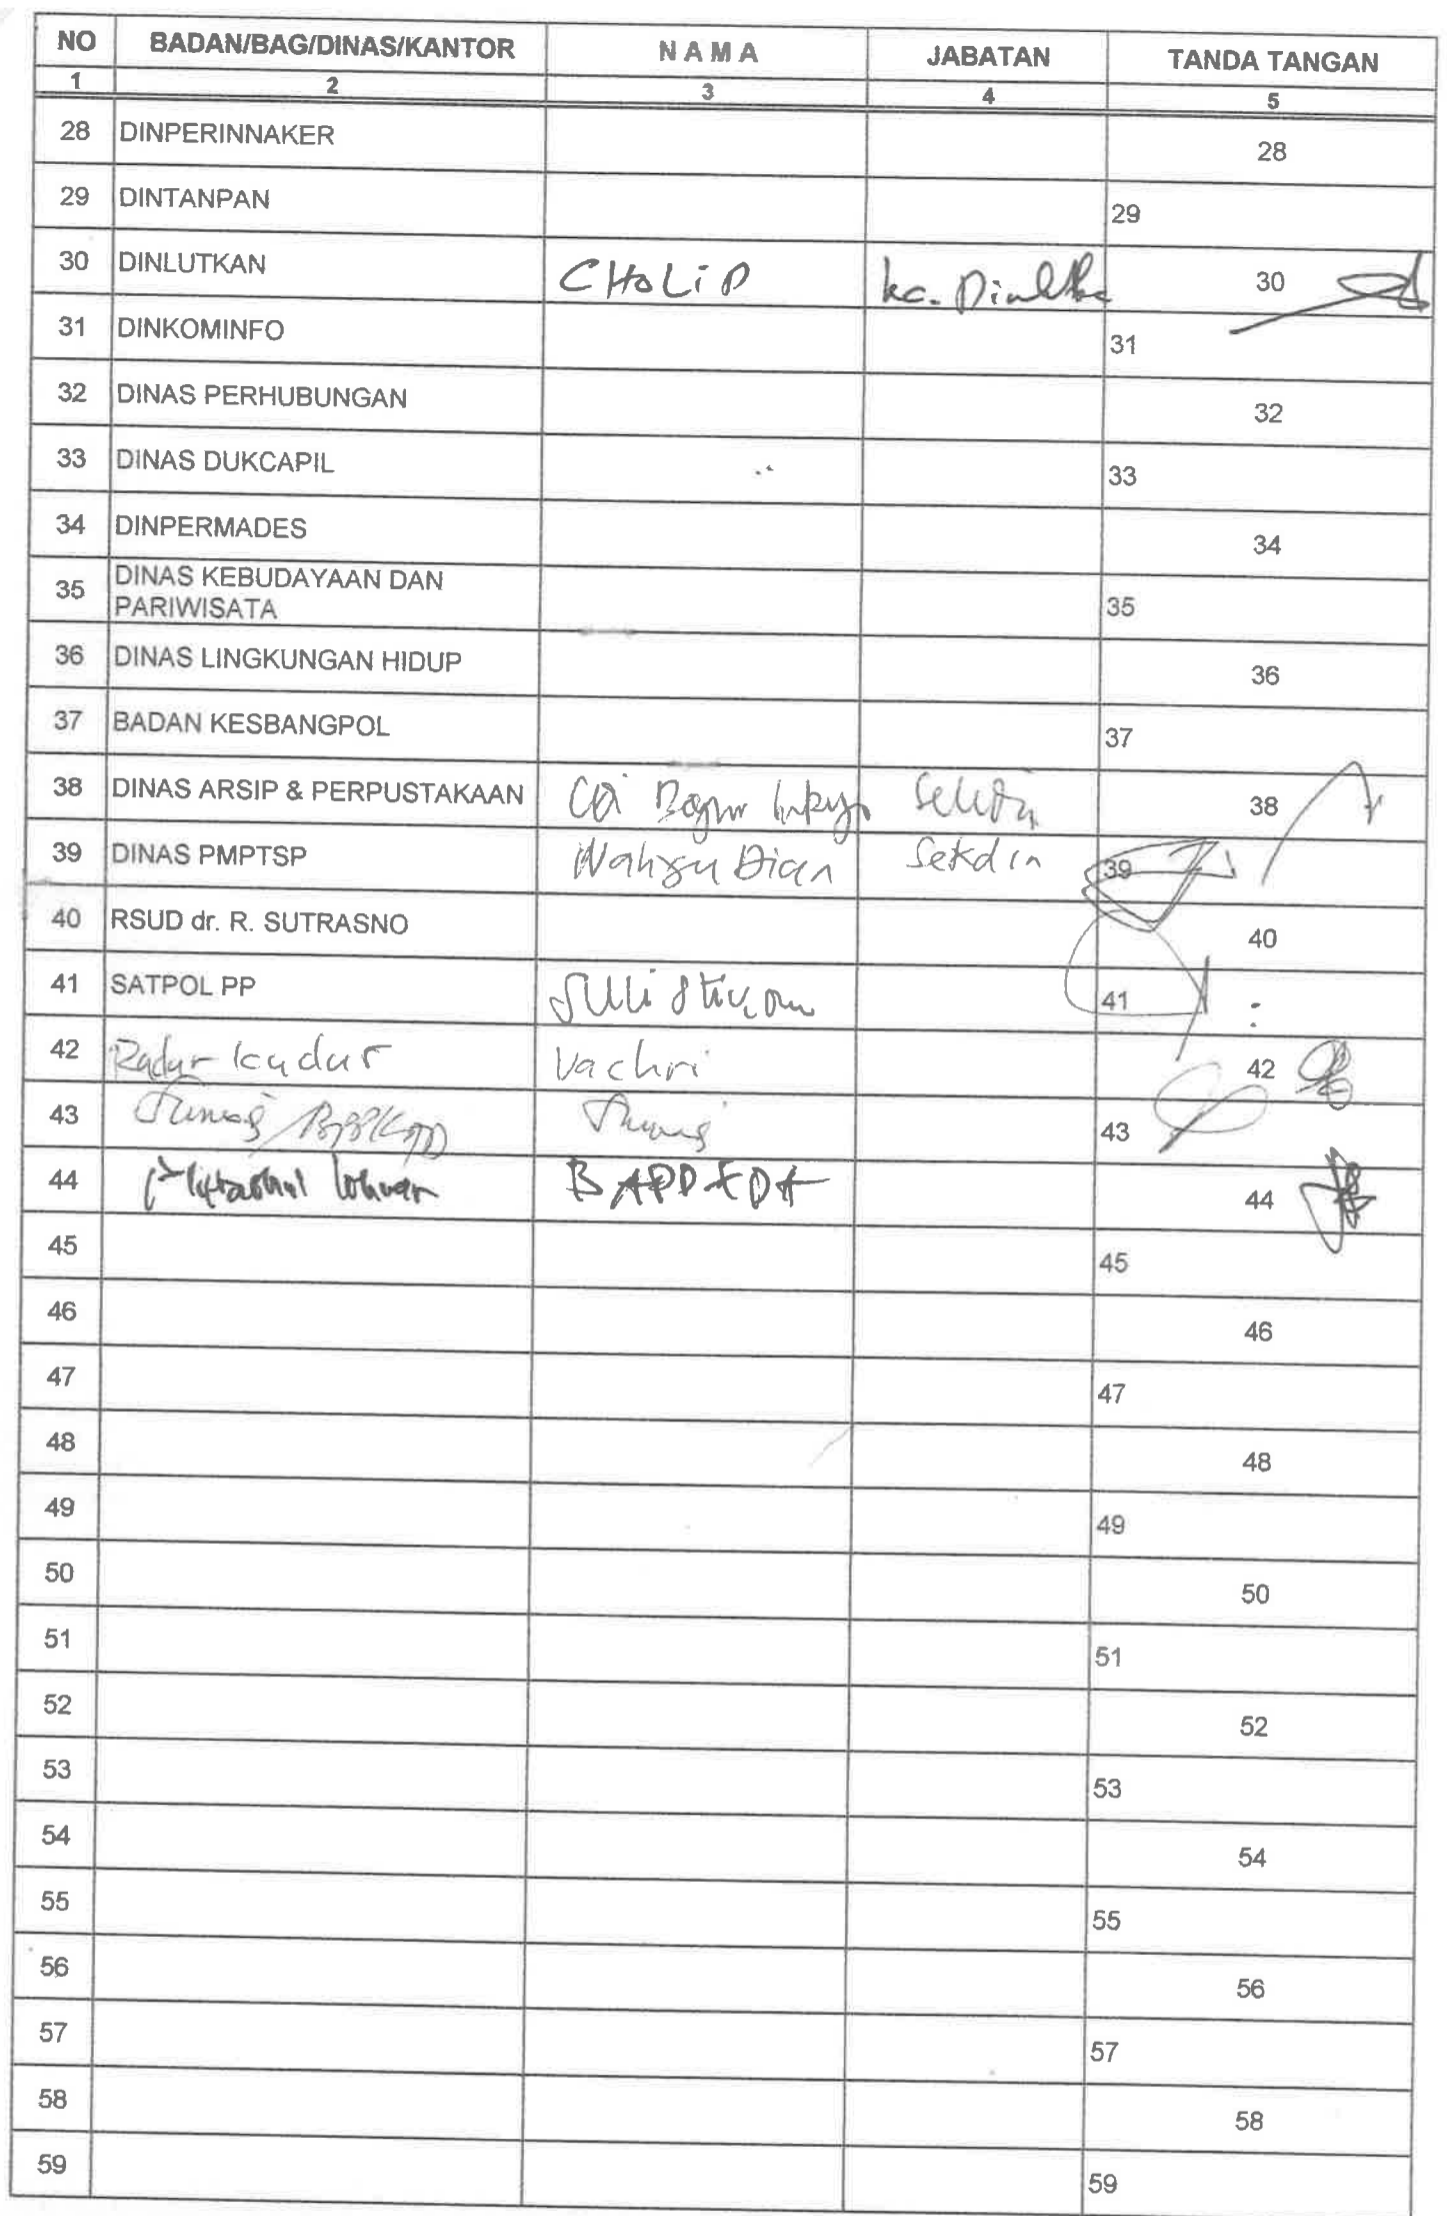 NO BADAN/BAG/DINAS/KANTOR N A M A JABATAN TANDA TANGAN
1 2 3 4 5
28 DINPERINNAKER 28
29 DINTANPAN 29
30 DINLUTKAN CHOLID 30
31 DINKOMINFO 31
32 DINAS PERHUBUNGAN 32
33 DINAS DUKCAPIL 33
34 DINPERMADES 34
35 DINAS KEBUDAYAAN DAN
PARIWISATA 35
36 DINAS LINGKUNGAN HIDUP 36
37 BADAN KESBANGPOL 37
38 DINAS ARSIP & PERPUSTAKAAN 38
39 DINAS PMPTSP Wahyu Dian Sekdin 39
40 RSUD dr. R. SUTRASNO 40
41 SATPOL PP 41
42 Radar kudus Vachri 42
43 43
44 BAPPEDA 44
45 45
46 46
47 47
48 48
49 49
50 50
51 51
52 52
53 53
54 54
55 55
56 56
57 57
58 58
59 59